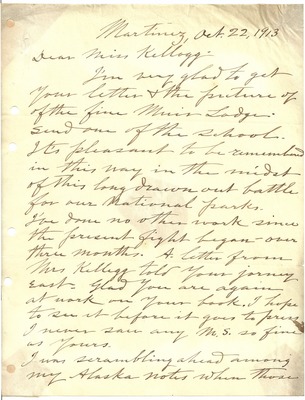 Martinez, Oct. 22, 1913
Dear Miss Kellogg:
I'm very glad to get
your letter & the picture of
of the fine Muir Lodge.
Send one of the school.
It's pleasant to be remembered
in this way in the midst
of this long drawn out battle
for our National parks.
I've done no other work since
the present fight began - over
three months. A letter from
Mrs Kellogg told your jorney
East - Glad you are again
at work on your book. I hope
to see it before it goes to press
I never saw any M.S. so fine
as yours.
I was scrambling ahead among
my Alaska notes when those